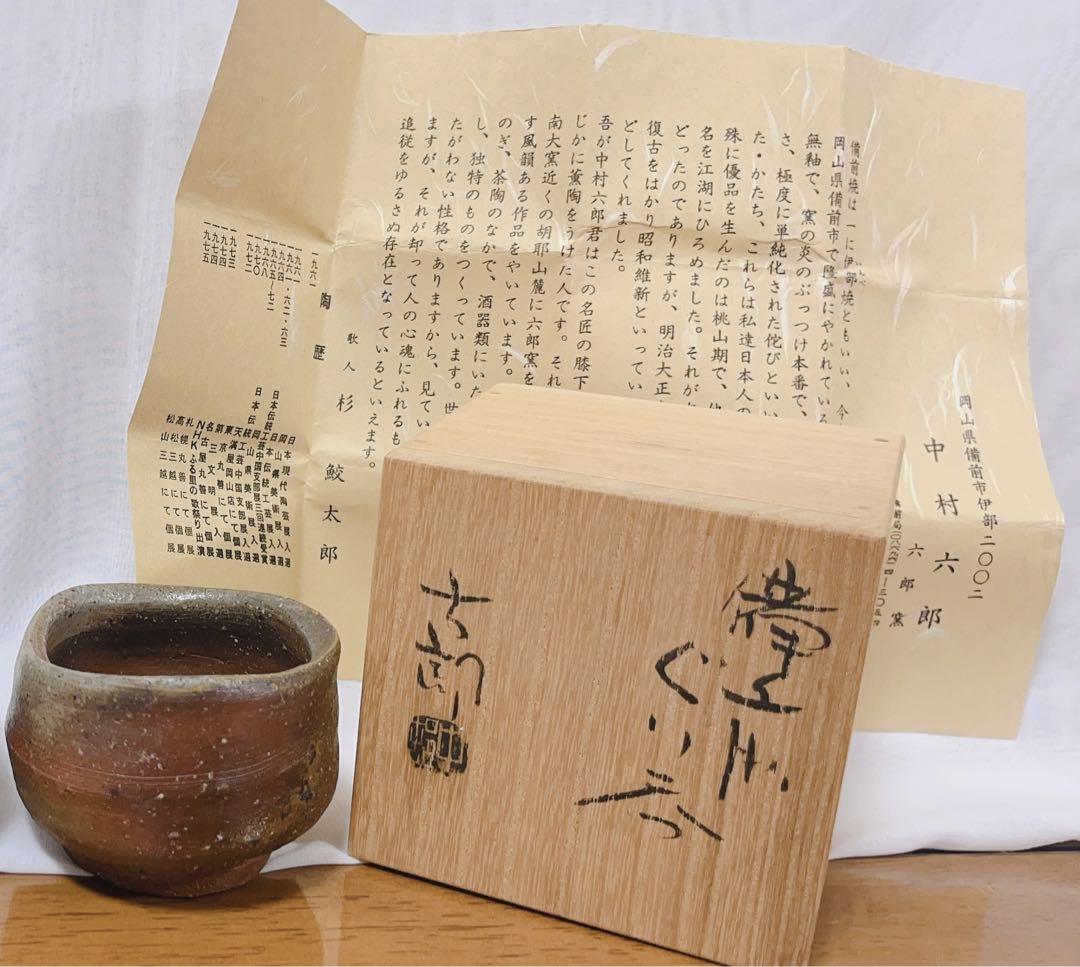 備前焼は一に伊部焼ともいい、今
岡山県備前市で隆盛にやかれている
無釉で、窯の炎のぶっつけ本番で、
さ、極度に単純化された侘びといい
た・かたち、これらは私達日本人の
殊に優品を生んだのは桃山期で、
名を江湖にひろめました。それが
とったのでありますが、明治大正
復古をはかり昭和維新といってい
としてくれました。
吾が中村六郎君はこの名匠の膝下
じかに薫陶をうけた人です。それ
南大窯近くの胡耶山麓に六郎窯を
す風韻ある作品をやいています。
のぎ、茶陶のなかで、酒器類にいた
し、独特のものをつくっています。世
たがわない性格でありますから、見てい
ますが、それが却って人の心魂にふれるも
追従をゆるさぬ存在となっているといえます。
歌人 杉鮫太郎
陶歴
一九六一 日本現代陶芸展入選
一九六一・六二・六三 岡山県美術展入選
一九六五〜七二
一九六八
一九七〇
一九七三
一九七四
一九七四
一九七五
日本伝統工芸中国支部展三回連続受賞
日本伝統工芸中国支部展入選
天満屋岡山店にて個展
東京丸善にて個展
名古屋丸善にて個展
NHKふる里の歌祭り出演
札幌丸善にて個展
高松三越にて個展
松山三越にて個展
岡山県備前市伊部二〇〇二
中村六郎
六郎窯
備前
ぐい呑
六郎